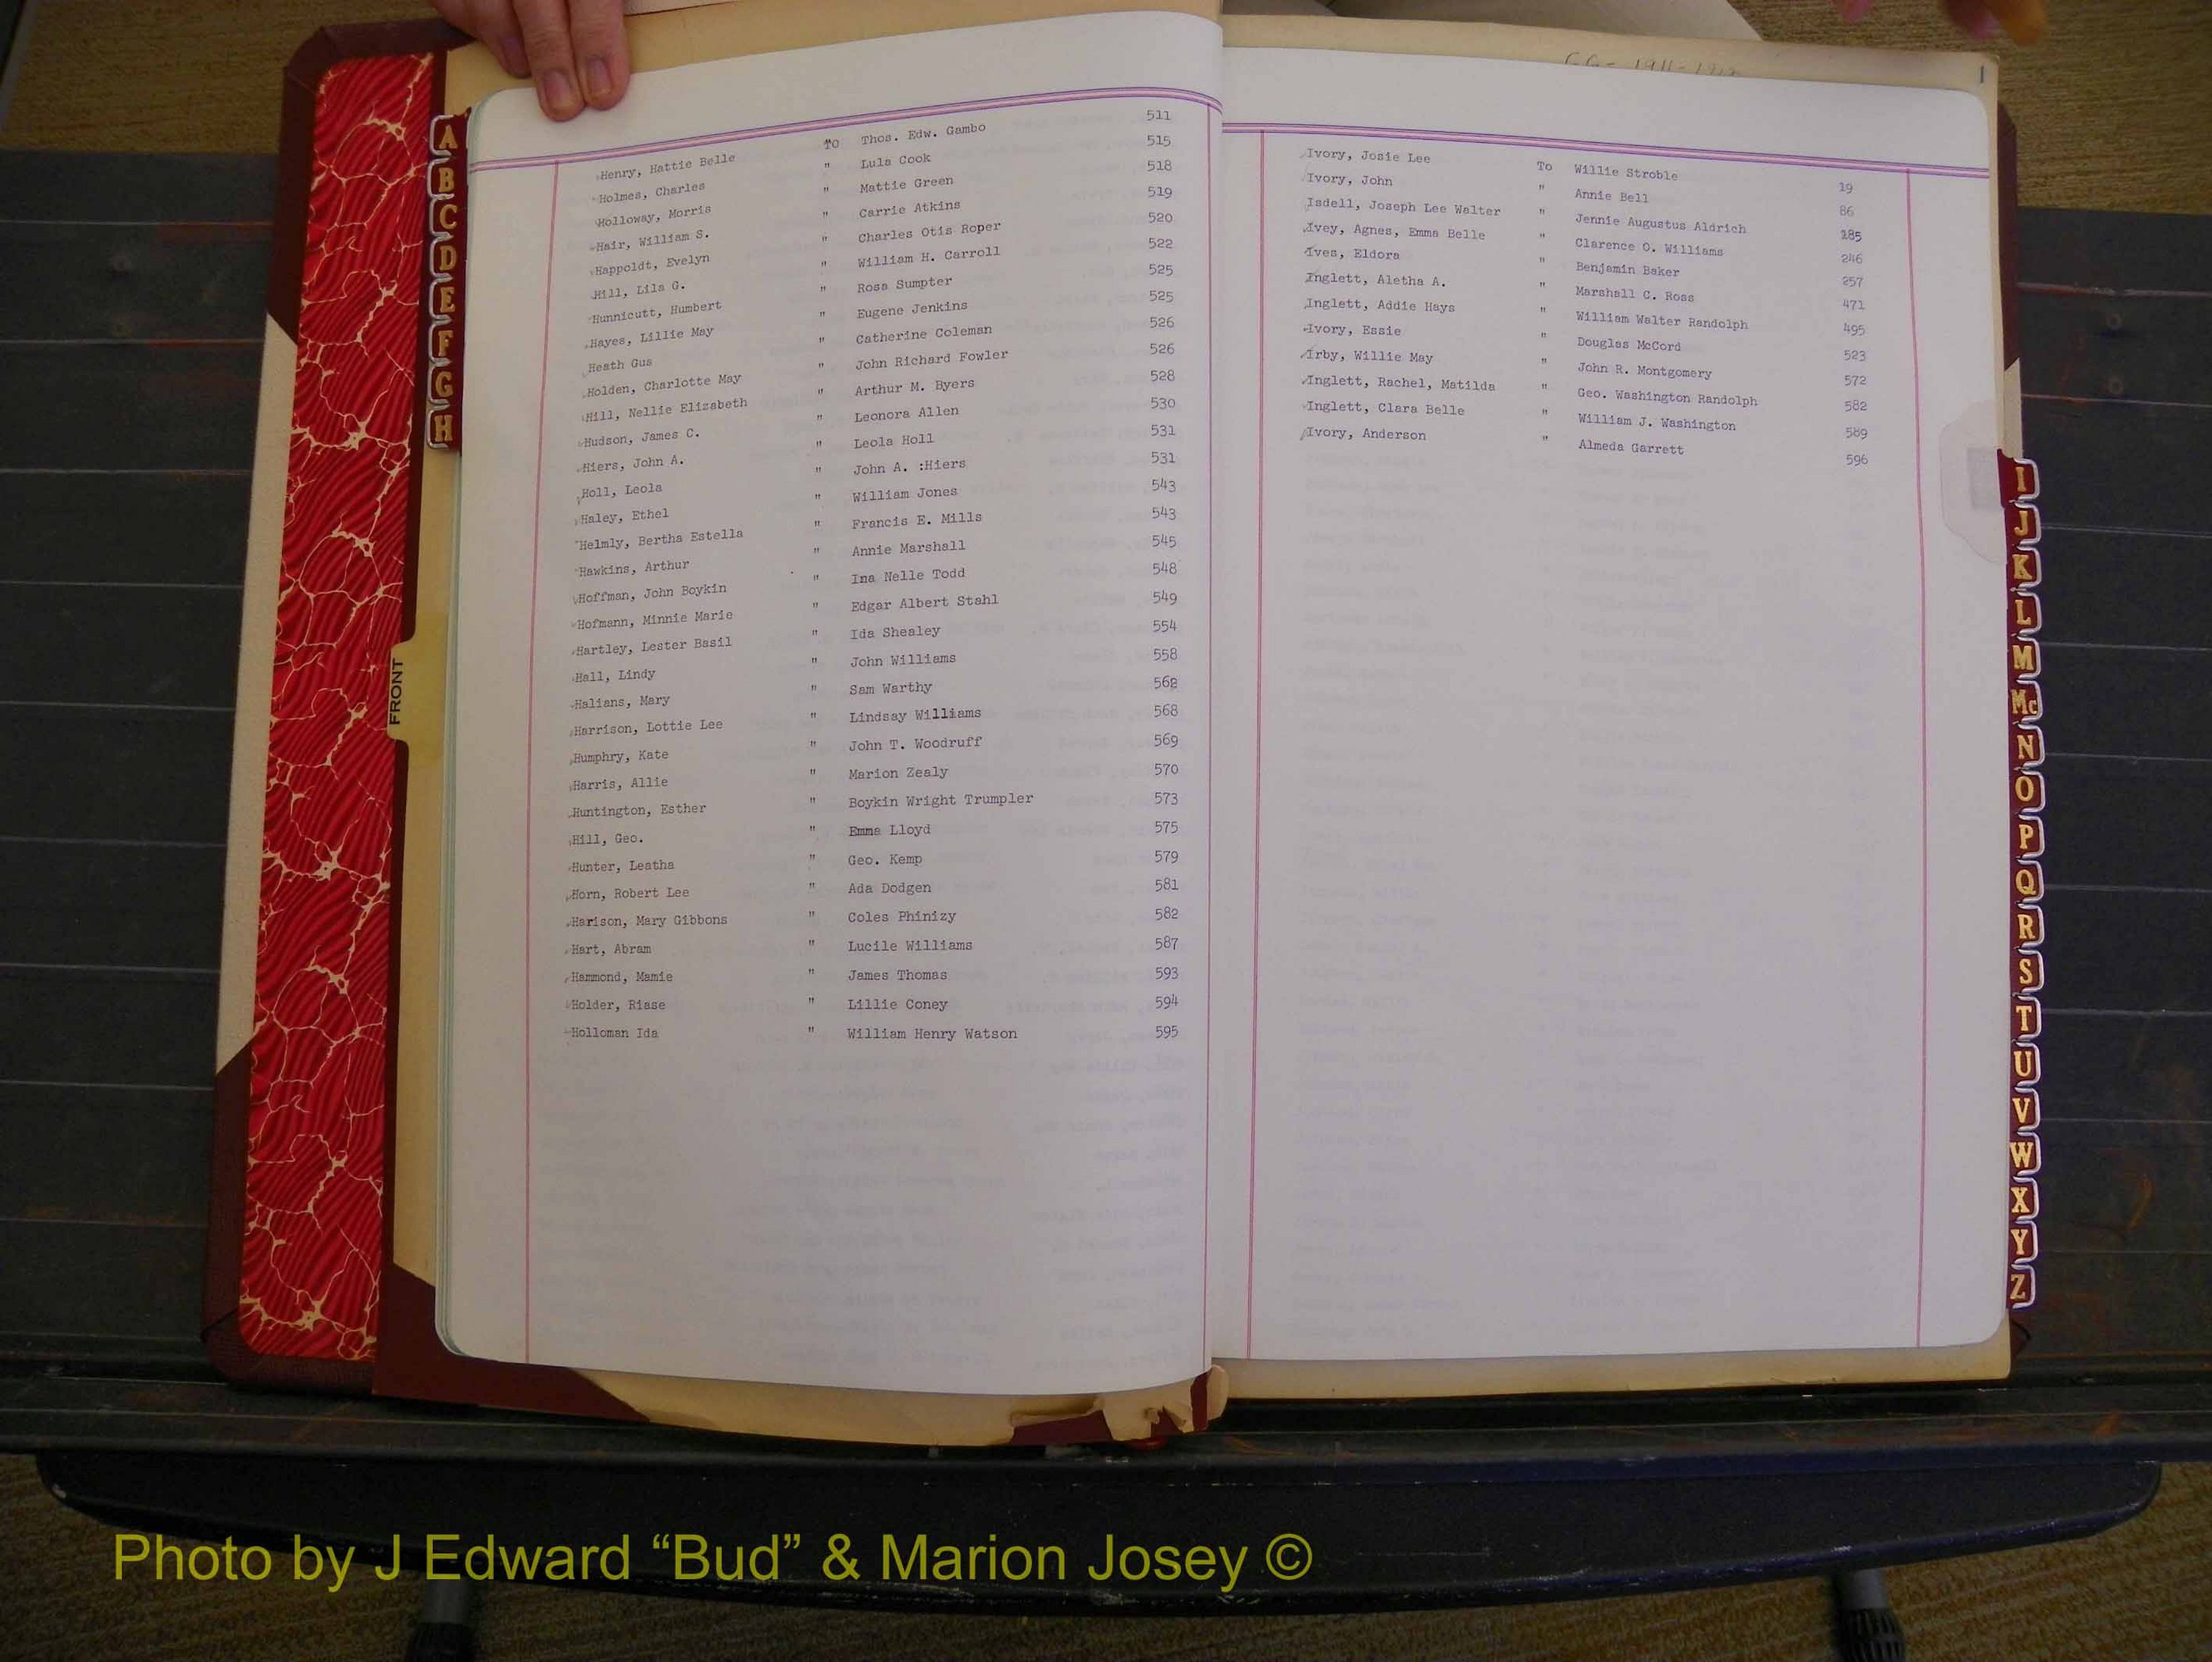 Henry, Hattie Belle To Thos. Edw. Gambo 511
Holmes, Charles " Lula Cook 515
Holloway, Morris " Mattie Green 518
Hair, William S. " Carrie Atkins 519
Happoldt, Evelyn " Charles Otis Roper 520
Hill, Lila G. " William H. Carroll 522
Hunnicutt, Humbert " Rosa Sumpter 525
Hayes, Lillie May " Eugene Jenkins 525
Heath Gus " Catherine Coleman 526
Holden, Charlotte May " John Richard Fowler 526
Hill, Nellie Elizabeth " Arthur M. Byers 528
Hudson, James C. " Leonora Allen 530
Hiers, John A. " Leola Holl 531
Holl, Leola " John A. :Hiers 531
Haley, Ethel " William Jones 543
Helmly, Bertha Estella " Francis E. Mills 543
Hawkins, Arthur " Annie Marshall 545
Hoffman, John Boykin " Ina Nelle Todd 548
Hofmann, Minnie Marie " Edgar Albert Stahl 549
Hartley, Lester Basil " Ida Shealey 554
Hall, Lindy " John Williams 558
Halians, Mary " Sam Warthy 562
Harrison, Lottie Lee " Lindsay Williams 568
Humphry, Kate " John T. Woodruff 569
Harris, Allie " Marion Zealy 570
Huntington, Esther " Boykin Wright Trumpler 573
Hill, Geo. " Emma Lloyd 575
Hunter, Leatha " Geo. Kemp 579
Horn, Robert Lee " Ada Dodgen 581
Harison, Mary Gibbons " Coles Phinizy 582
Hart, Abram " Lucile Williams 587
Hammond, Mamie " James Thomas 593
Holder, Riase " Lillie Coney 594
Holloman Ida " William Henry Watson 595
Ivory, Josie Lee To Willie Stroble 19
Ivory, John " Annie Bell 86
Isdell, Joseph Lee Walter " Jennie Augustus Aldrich 185
Ivey, Agnes, Emma Belle " Clarence O. Williams 246
Ives, Eldora " Benjamin Baker 257
Inglett, Aletha A. " Marshall C. Ross 471
Inglett, Addie Hays " William Walter Randolph 495
Ivory, Essie " Douglas McCord 523
Irby, Willie May " John R. Montgomery 572
Inglett, Rachel, Matilda " Geo. Washington Randolph 582
Inglett, Clara Belle " William J. Washington 589
Ivory, Anderson " Almeda Garrett 596
A
B
C
D
E
F
G
H
FRONT
I
J
K
L
M
Mc
N
O
P
Q
R
S
T
U
V
W
X
Y
Z
Photo by J Edward “Bud” & Marion Josey ©